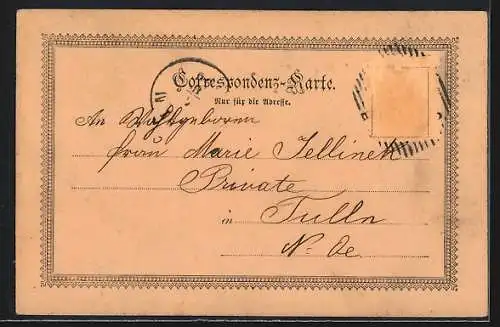 Correspondenz-Karte.
Nur für die Adresse.
An Wohlgeboren
Frau Marie Jellinek
Private
in Tulln
N. Oe.